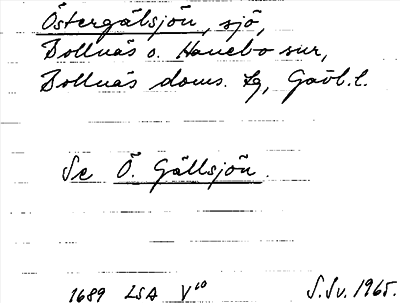 Östergälsjön, sjö,
Bollnäs o. Hanebo snr,
Bollnäs doms. lg, Gävl.l.
Se Ö. Gällsjön.
1689 LSA V¹⁰ S.Sv. 1965.